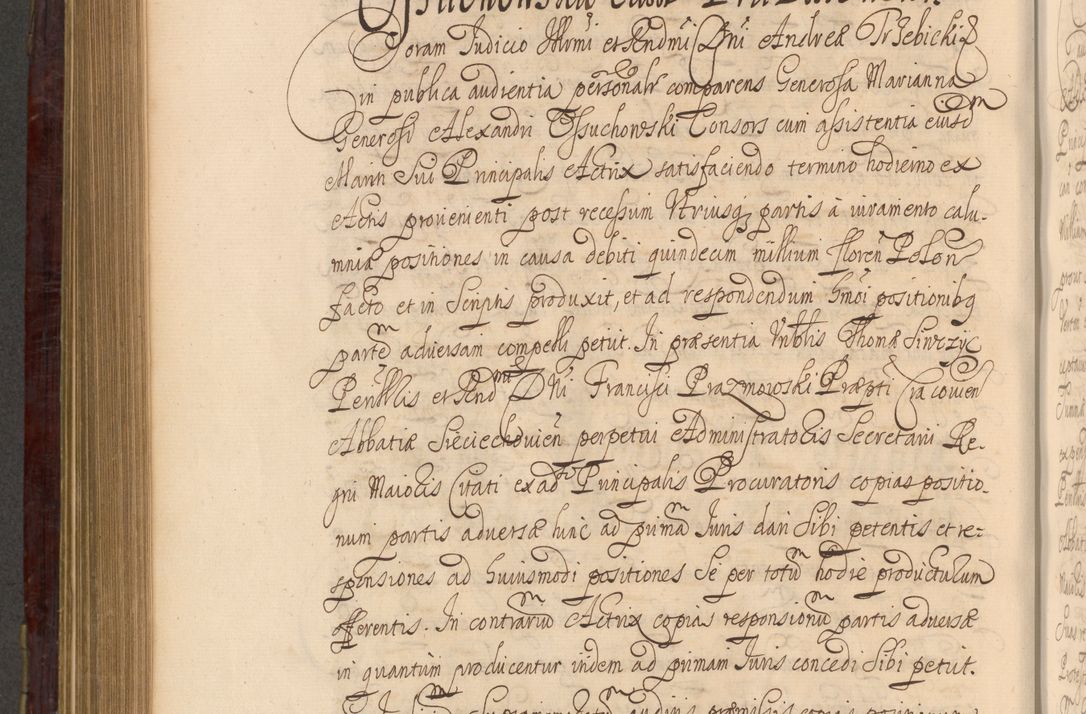 Coram Iudicio Illrmi et Rndmi Dni Andreæ Trzebicki
in publica audientia personalr comparens Generosa Marianna
Generosi Alexandri Ossuchowski Consors cum assistentia eiusdm
Mariti Sui Principalis Actrix satisfaciendo termino hodierno ex
Actis provenienti post recessum Utriusq partis à iuramento calu-
mniæ positiones in causa debiti quindecim millium floren Polon
facto et in Scriptis produxit, et ad respondendum hmoi positionibq
partem adversam compelli petiit. In præsentia Nobilis Thomæ
Perillis et Rndmi Dni Francisci Prazmowski Præpti Cracovien
Abbatiæ Sieciechovien perpetui Administratoris Secretarii Re-
gni Maioris Citati ex ad Principalis Procuratoris copias positio-
num partis adversæ hinc ad primam Iuris dari Sibi petentis et re-
sponsiones ad huiusmodi positiones Se per totum hodie producturum
offerentis. In contrarium Actrix copias responsionum partis adversæ
in quantum producentur itidem ad primam Iuris concedi Sibi petiit.